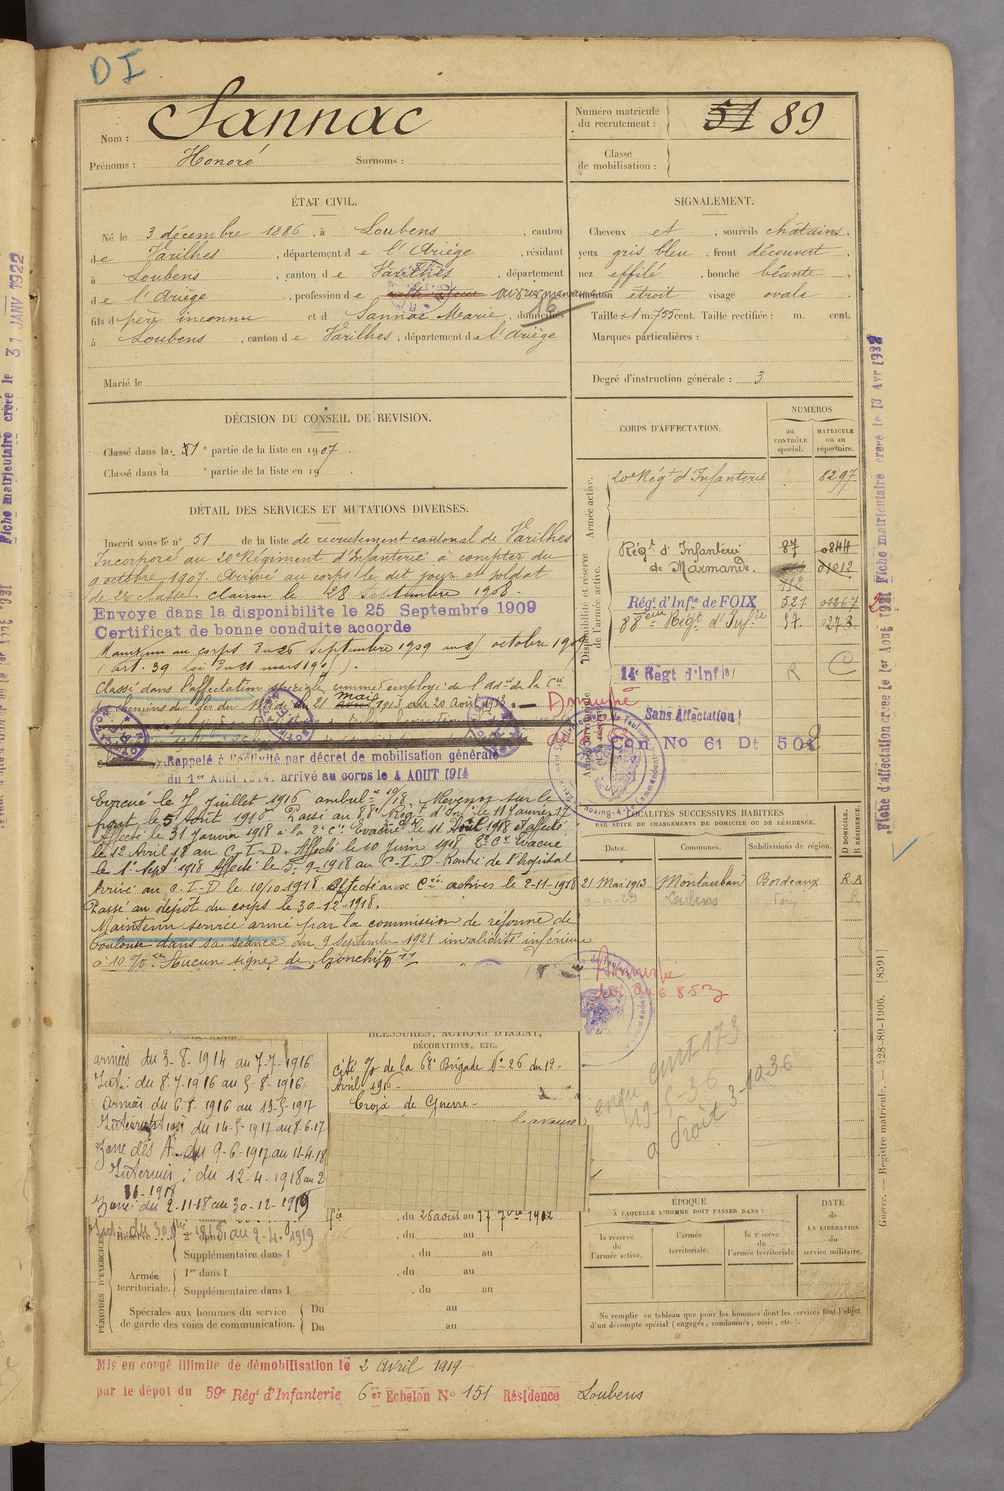 DI
Nom : Sannac
Prénoms : Honoré Surnoms :
Numéro matricule
du recrutement : 51 89
Classe
de mobilisation :
ÉTAT CIVIL.
Né le 3 décembre 1886, à Loubens, canton
de Varilhes, département de l'Ariège, résidant
à Loubens, canton de Varilhes, département
de l'Ariège, profession de
fils de père inconnu et de Sannac Marie, domiciliés
à Loubens, canton de Varilhes, département de l'Ariège
Marié le
SIGNALEMENT.
Cheveux et, sourcils châtains,
yeux gris bleu, front découvert,
nez effilé, bouche béante,
menton étroit visage ovale
Taille : 1 m. 755 cent. Taille rectifiée : m. cent.
Marques particulières :
Degré d'instruction générale : 3
DÉCISION DU CONSEIL DE REVISION.
Classé dans la 51e partie de la liste en 1907.
Classé dans la e partie de la liste en 19
DÉTAIL DES SERVICES ET MUTATIONS DIVERSES.
Inscrit sous le n° 51 de la liste de recrutement cantonal de Varilhes
Incorporé au 20e Régiment d'Infanterie à compter du
9 octobre 1907. Arrivé au corps le dit jour et soldat
de 2e classe. Clairon le 28 Septembre 1908.
Envoye dans la disponibilite le 25 Septembre 1909
Certificat de bonne conduite accorde
Maintenu au corps du 25 septembre 1909 au octobre 1909
(art. 39 loi du 21 mars 1905).
Classé dans l'affectation spéciale comme employé de l'Adon de la Cie
chemins de fer du Midi du 21 mai 1913 au 20 Août 1913.
Rappelé à l'activité par décret de mobilisation générale
du 1er Août 1914. arrivé au corps le 4 AOUT 1914
Evacué le 7 juillet 1916 ambulce 10/18. Revenu sur le
front le 5 Août 1916. Passé au 88e Régt d'Infie le 11 Janvier 17
Affecté le 31 Janvier 1918 à la 2e Cie Evacué le 11 Avril 1918 et affecté
le 12 Avril 18 au C.I.D. Affecté le 10 Juin 1918 Cie Evacué
le 1er Sept 1918 Affecté le 5-9-1918 au C.I.D. Rentré de l'hôpital
Arrivé au C.I.D le 10/10/1918 Affecté aux Cies actives le 2-11-1918
Passé au dépôt du corps le 30-12-1918.
Maintenu service armé par la commission de réforme de
Toulouse dans sa séance du 9 Septembre 1921 invalidité inférieure
à 10 % Aucun signe de bronchite
CORPS D'AFFECTATION.
NUMÉROS
au
CONTRÔLE
spécial.
MATRICULE
ou au
répertoire.
Armée active.
20e Régt d'Infanterie 8297
Disponibilité et réserve
de l'armée active.
Régt d'Infanterie 87 0844
de Marmande. 112 01012
Régt d'Infie de FOIX 327 01267
88eme Régt d'Infie 57. 0273
14e Regt d'Infie R C
Sans Affectation
Con No 61 Dt 502
LOCALITÉS SUCCESSIVES HABITÉES
PAR SUITE DE CHANGEMENTS DE DOMICILE OU DE RÉSIDENCE.
Dates. Communes. Subdivisions de région. D DOMICILE. R RÉSIDENCE.
21 Mai 1913 Montauban Bordeaux R.A
Loubens Foix R
Amnistie
BLESSURES, ACTIONS D'ÉCLAT,
DÉCORATIONS, ETC.
cité o/ de la 68e Brigade No 26 du 12
Avril 1916
Croix de Guerre
armées du 3-8-1914 au 7-7-1916
Int. : du 8-7-1916 au 5-8-1916
Armées du 6-8-1916 au 13-5-1917
Intérieur du 14-5-1917 au 8-6-17
Zone des As du 9-6-1917 au 11-4-18
Intérieur : du 12-4-1918 au 2
Zone : du 2-11-18 au 30-12-1919
, du 26 août au 17 7bre 1912
, du au
Supplémentaire dans l , du au
PÉRIODES D'EXERCICES
Réserve
Armée
territoriale.
1re dans l , du au
Supplémentaire dans l , du au
Spéciales aux hommes du service
de garde des voies de communication.
Du au
Du au
ÉPOQUE
À LAQUELLE L'HOMME DOIT PASSER DANS :
la réserve
de
l'armée active.
l'armée
territoriale.
la réserve
de
l'armée territoriale
DATE
de
LA LIBÉRATION
du
service militaire.
Ne remplir ce tableau que pour les hommes dont les services font l'objet
d'un décompte spécial (engagés, condamnés, omis, etc.).
Mis en congé illimité de démobilisation le 2 avril 1919
par le dépot du 59e Régt d'Infanterie 6er Echelon No 151 Résidence Loubens
Fiche matriculaire créée le 31 JANV 1922
Fiche matriculaire créée le 13 Avr 1932
Fiche d'affectation créée le 1er Août 1921
Guerre. — Registre matricule. — 428-89-1906. [8591]